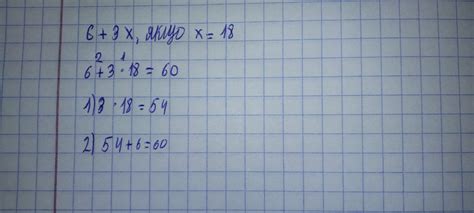 6 + 3x, якщо x = 18
2 1
6 + 3 · 18 = 60
1) 3 · 18 = 54
2) 54 + 6 = 60